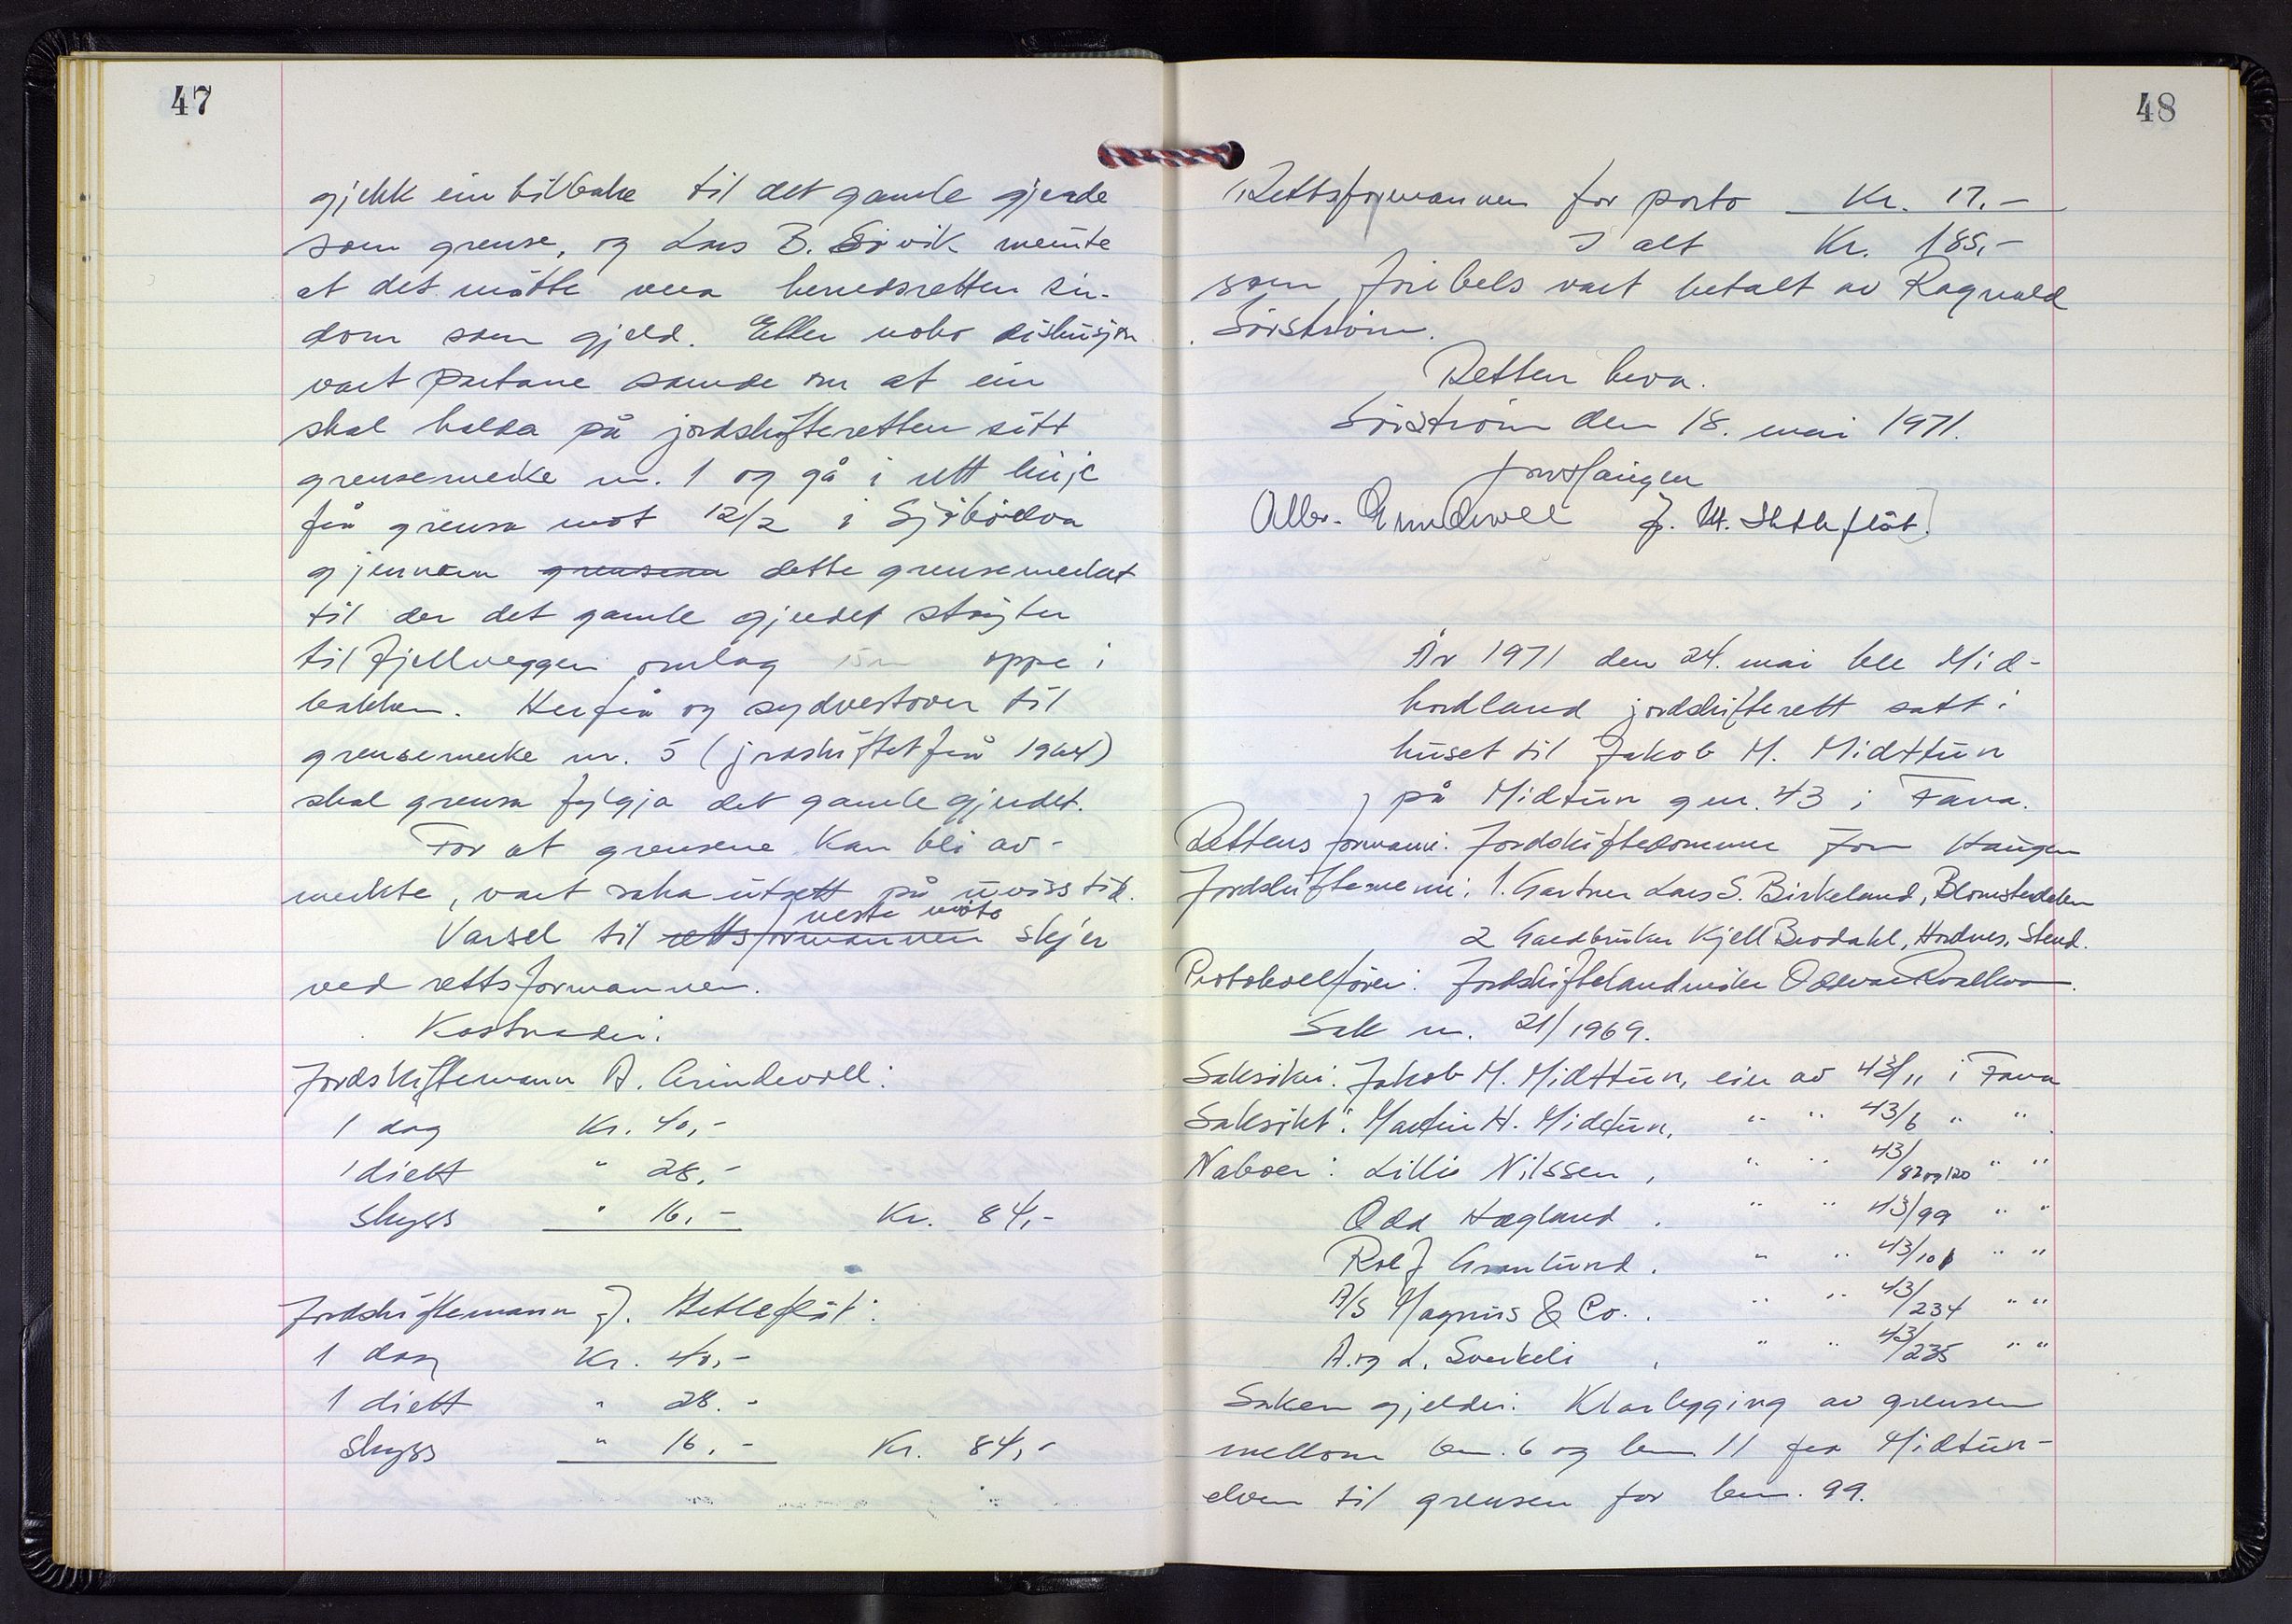 47
gjekk ein tilbake til det gamle gjerde
som grense, og Lars B. Sörvik meinte
at det måtte vera herredsretten sin
dom som gjeld. Etter noko diskusjon
vart partane samde om at ein
skal halda på jordskifteretten sitt
grensemerke nr. 1 og gå i rett linje
frå grensa mot 12/2 i Sjöbödva
gjennom grensene dette grensemerket
til der det gamle gjerdet stöyter
til fjellveggen omlag 15 m oppe i
bakken. Herfrå og sydvestover til
grensemerke nr. 5 (jordskiftet frå 1964)
skal grensa fylgja det gamle gjerdet.
For at grensene kan bli av-
merkte, vart saka utsett på uviss tid.
neste möte
Varsel til rettsformannen skjer
ved rettsformannen.
Kostnader:
Jordskiftemann A. Grindevoll:
1 dag Kr. 40,-
1 diett " 28,-
skyss " 16,- Kr. 84,-
Jordskiftemann J. Hetleflåt:
1 dag Kr. 40,-
1 diett " 28.-
skyss " 16,- Kr. 84,-
48
Rettsformannen for porto Kr. 17.-
I alt Kr. 185,-
som förebels vart betalt av Ragnvald
Sörström.
Retten heva.
Sörström den 18. mai 1971.
Jon Haugen
Albr. Grindevoll J. M. Hetleflåt.
År 1971 den 24. mai ble Mid-
hordland jordskifterett satt i
huset til Jakob M. Midttun
på Midtun gnr. 43 i Fana.
Rettens formann: Jordskiftedommer Jon Haugen
Jordskiftemenn: 1. Gartner Lars S. Birkeland, Blomsterdalen
2 Gardbruker Kjell Brodahl, Hordnes, Stend.
Protokollförer: Jordskiftelandmåler Oddvar
Sak nr. 21/1969.
Saksöker: Jakob M. Midttun, eier av 43/11 i Fana
Saksökt: Martin H. Midttun, " " 43/6 " "
Naboer: Lillie Nilssen, " " 43/82 og 120 " "
Odd Hagland. " " 43/99 " "
Rolf Granlund. " " 43/101 " "
A/S Magnus & Co. . " " 43/234 " "
A. og L. Sverkeli , " " 43/235 " "
Saken gjelder: Klarlegging av grensen
mellom bnr. 6 og bnr 11 fra Midtun-
elven til grensen for bnr. 99.